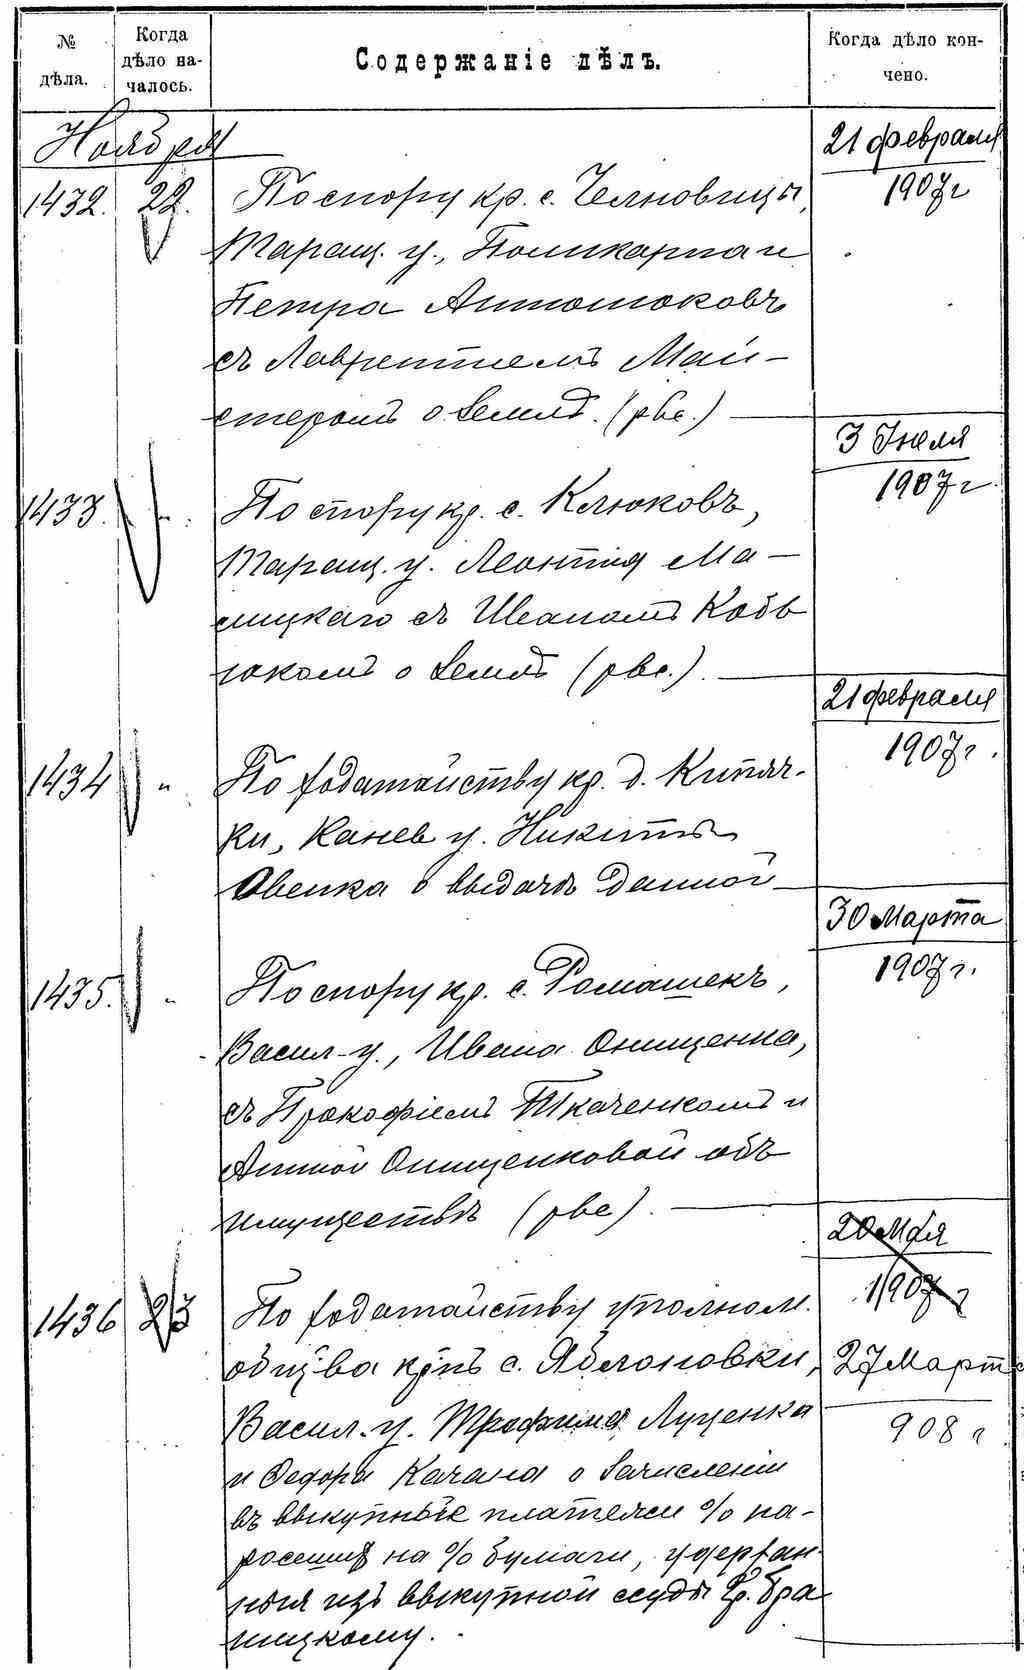 № дѣла.
Когда дѣло на-
чалось.
Содержаніе дѣлъ.
Когда дѣло кон-
чено.
Ноября
21 февраля
1907 г
1432. 22. По спору кр. с. Челновицы,
Таращ. у., Поликарпа и
Петра Антошоковъ
съ Лаврентіемъ Май-
стеромъ о землѣ. (рвс.)
3 Іюля
1907 г.
1433. " По спору кр. с. Клюковъ,
Таращ. у. Леонтія Ма-
лицкаго съ Иваномъ Кобы
юкомъ о землѣ (рвс.).
21 февраля
1907 г.
1434 " По ходатайству кр. д. Кипяч-
ки, Канев у. Никиты
Овенка о выдачѣ данной
30 Марта
1907 г.
1435. " По спору кр. с. Ромашекъ,
Васил-у., Ивана Онищенка,
съ Прокофіемъ Ткаченкомъ и
Анной Онищенковой объ
имуществѣ (рвс).
20 Мая
1907 г
1436 23 По ходатайству уполном.
общ-ва кр-нъ с. Яблоновки,
27 Март
Васил. у. Трофима Луценка
908 г
и Федора Качана о зачисленіи
въ выкупные платежи % на-
росшихъ на % бумаги, удержан-
ныя изъ выкупной ссуды гр. Бра
ницкому.